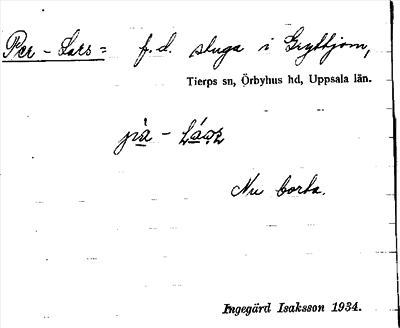 Per-Lars = f.d. stuga i Gryttjom,
Tierps sn, Örbyhus hd, Uppsala län.
Nu borta.
Ingegärd Isaksson 1934.